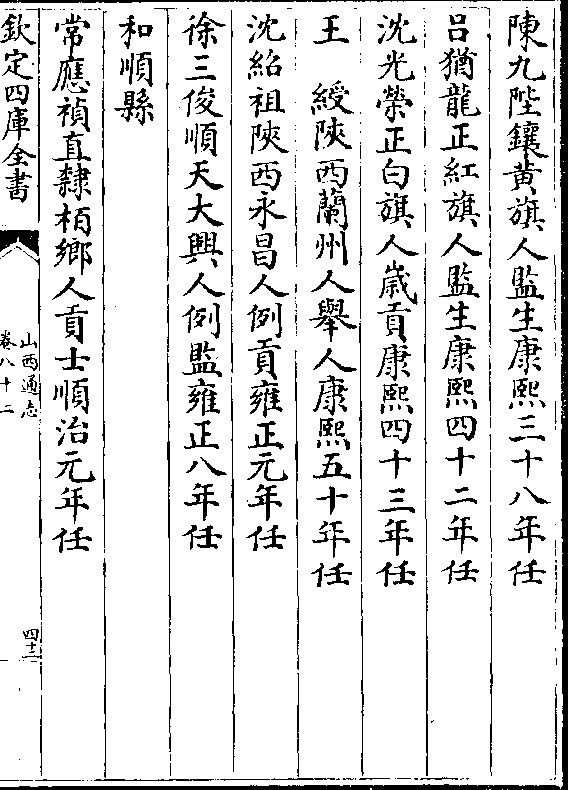 陳九陛鑲黃旗人監生康熙三十八年任
呂猶龍正紅旗人監生康熙四十二年任
沈光榮正白旗人歲貢康熙四十三年任
王　綬陝西蘭州人舉人康熙五十年任
沈紹祖陝西永昌人例貢雍正元年任
徐三俊順天大興人例監雍正八年任
和順縣
常應禎直隸栢鄉人貢士順治元年任
欽定四庫全書
山西通志
卷八十二
四十三